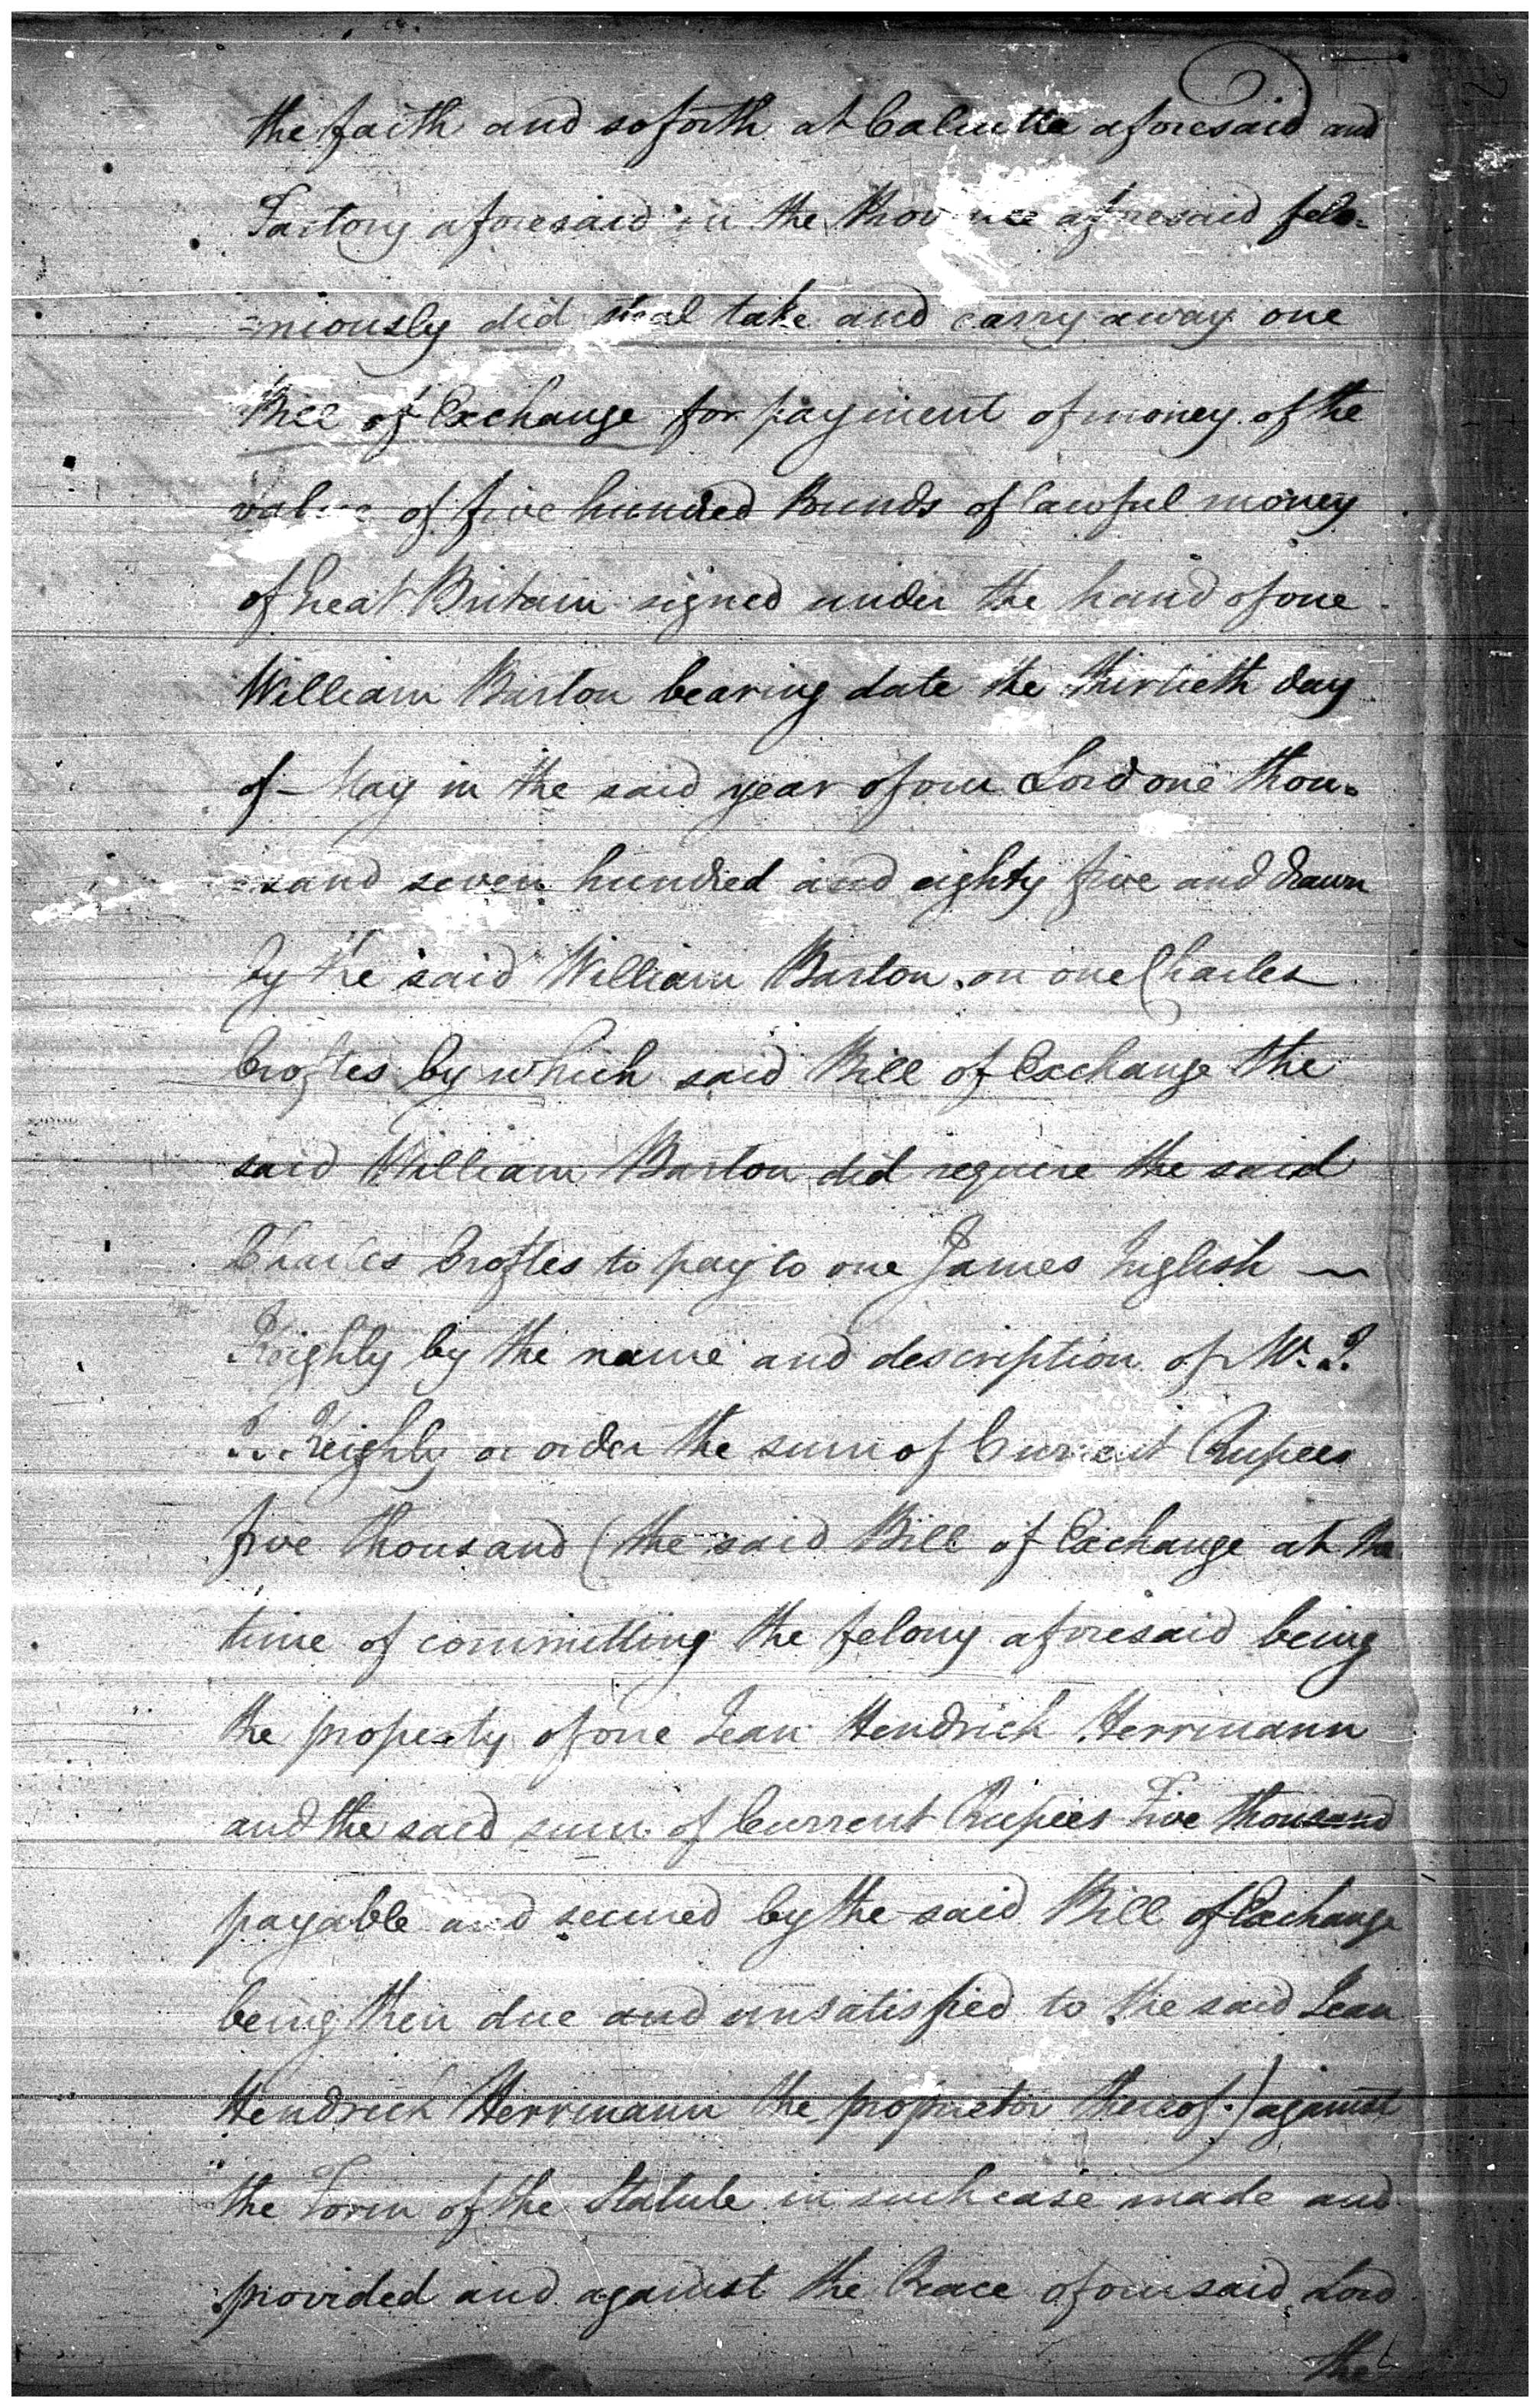 the faith and soforth at Calcutta aforesaid and
Factory aforesaid in the Province aforesaid felo=
=niously did steal take and carry away one
Bill of Exchange for payment of money of the
value of five hundred Pounds of lawful money
of Great Britain signed under the hand of one
William Barton bearing date the thirtieth day
of May in the said year of our Lord one thou=
=sand seven hundred and eighty five and drawn
by the said William Barton on one Charles
Croftes by which said Bill of Exchange the
said William Barton did require the said
Charles Croftes to pay to one James Inglish
Keighly by the name and description of Mr. J.
I. Keighly or order the sum of Current Rupees
five thousand (the said Bill of Exchange at the
time of committing the felony aforesaid being
the property of one Jean Hendrich Herrmann
and the said sum of Current Rupees Five thousand
payable and secured by the said Bill of Exchange
being then due and unsatisfied to the said Jean
Hendrich Herrmann the proprietor thereof.) against
the Form of the Statute in such case made and
provided and against the Peace of our said Lord
the